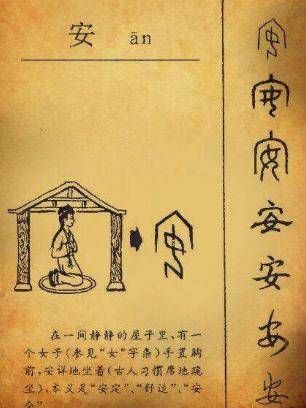 安 ān
在一间静静的屋子里,有一
个女子(参见“女”字条)手置胸
前,安详地坐着(古人习惯席地跪
坐),本义是“安定”、“舒适”、“安
全”
安
安
安
安
安
安
安